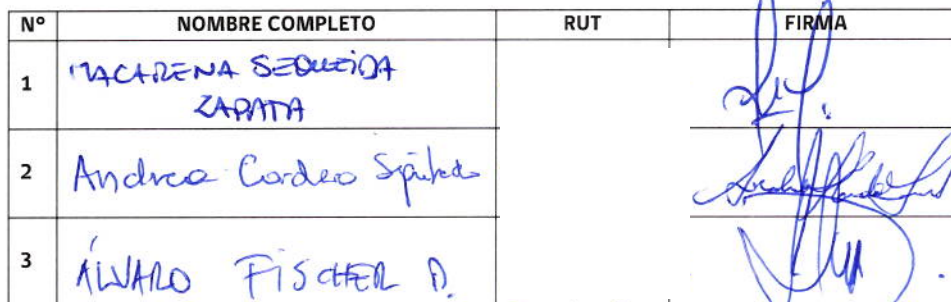 N° NOMBRE COMPLETO RUT FIRMA
1 MACARENA SEQUEIDA
ZAPATA
2 Andrea Cordero
3 ÁLVARO FISCHER D.